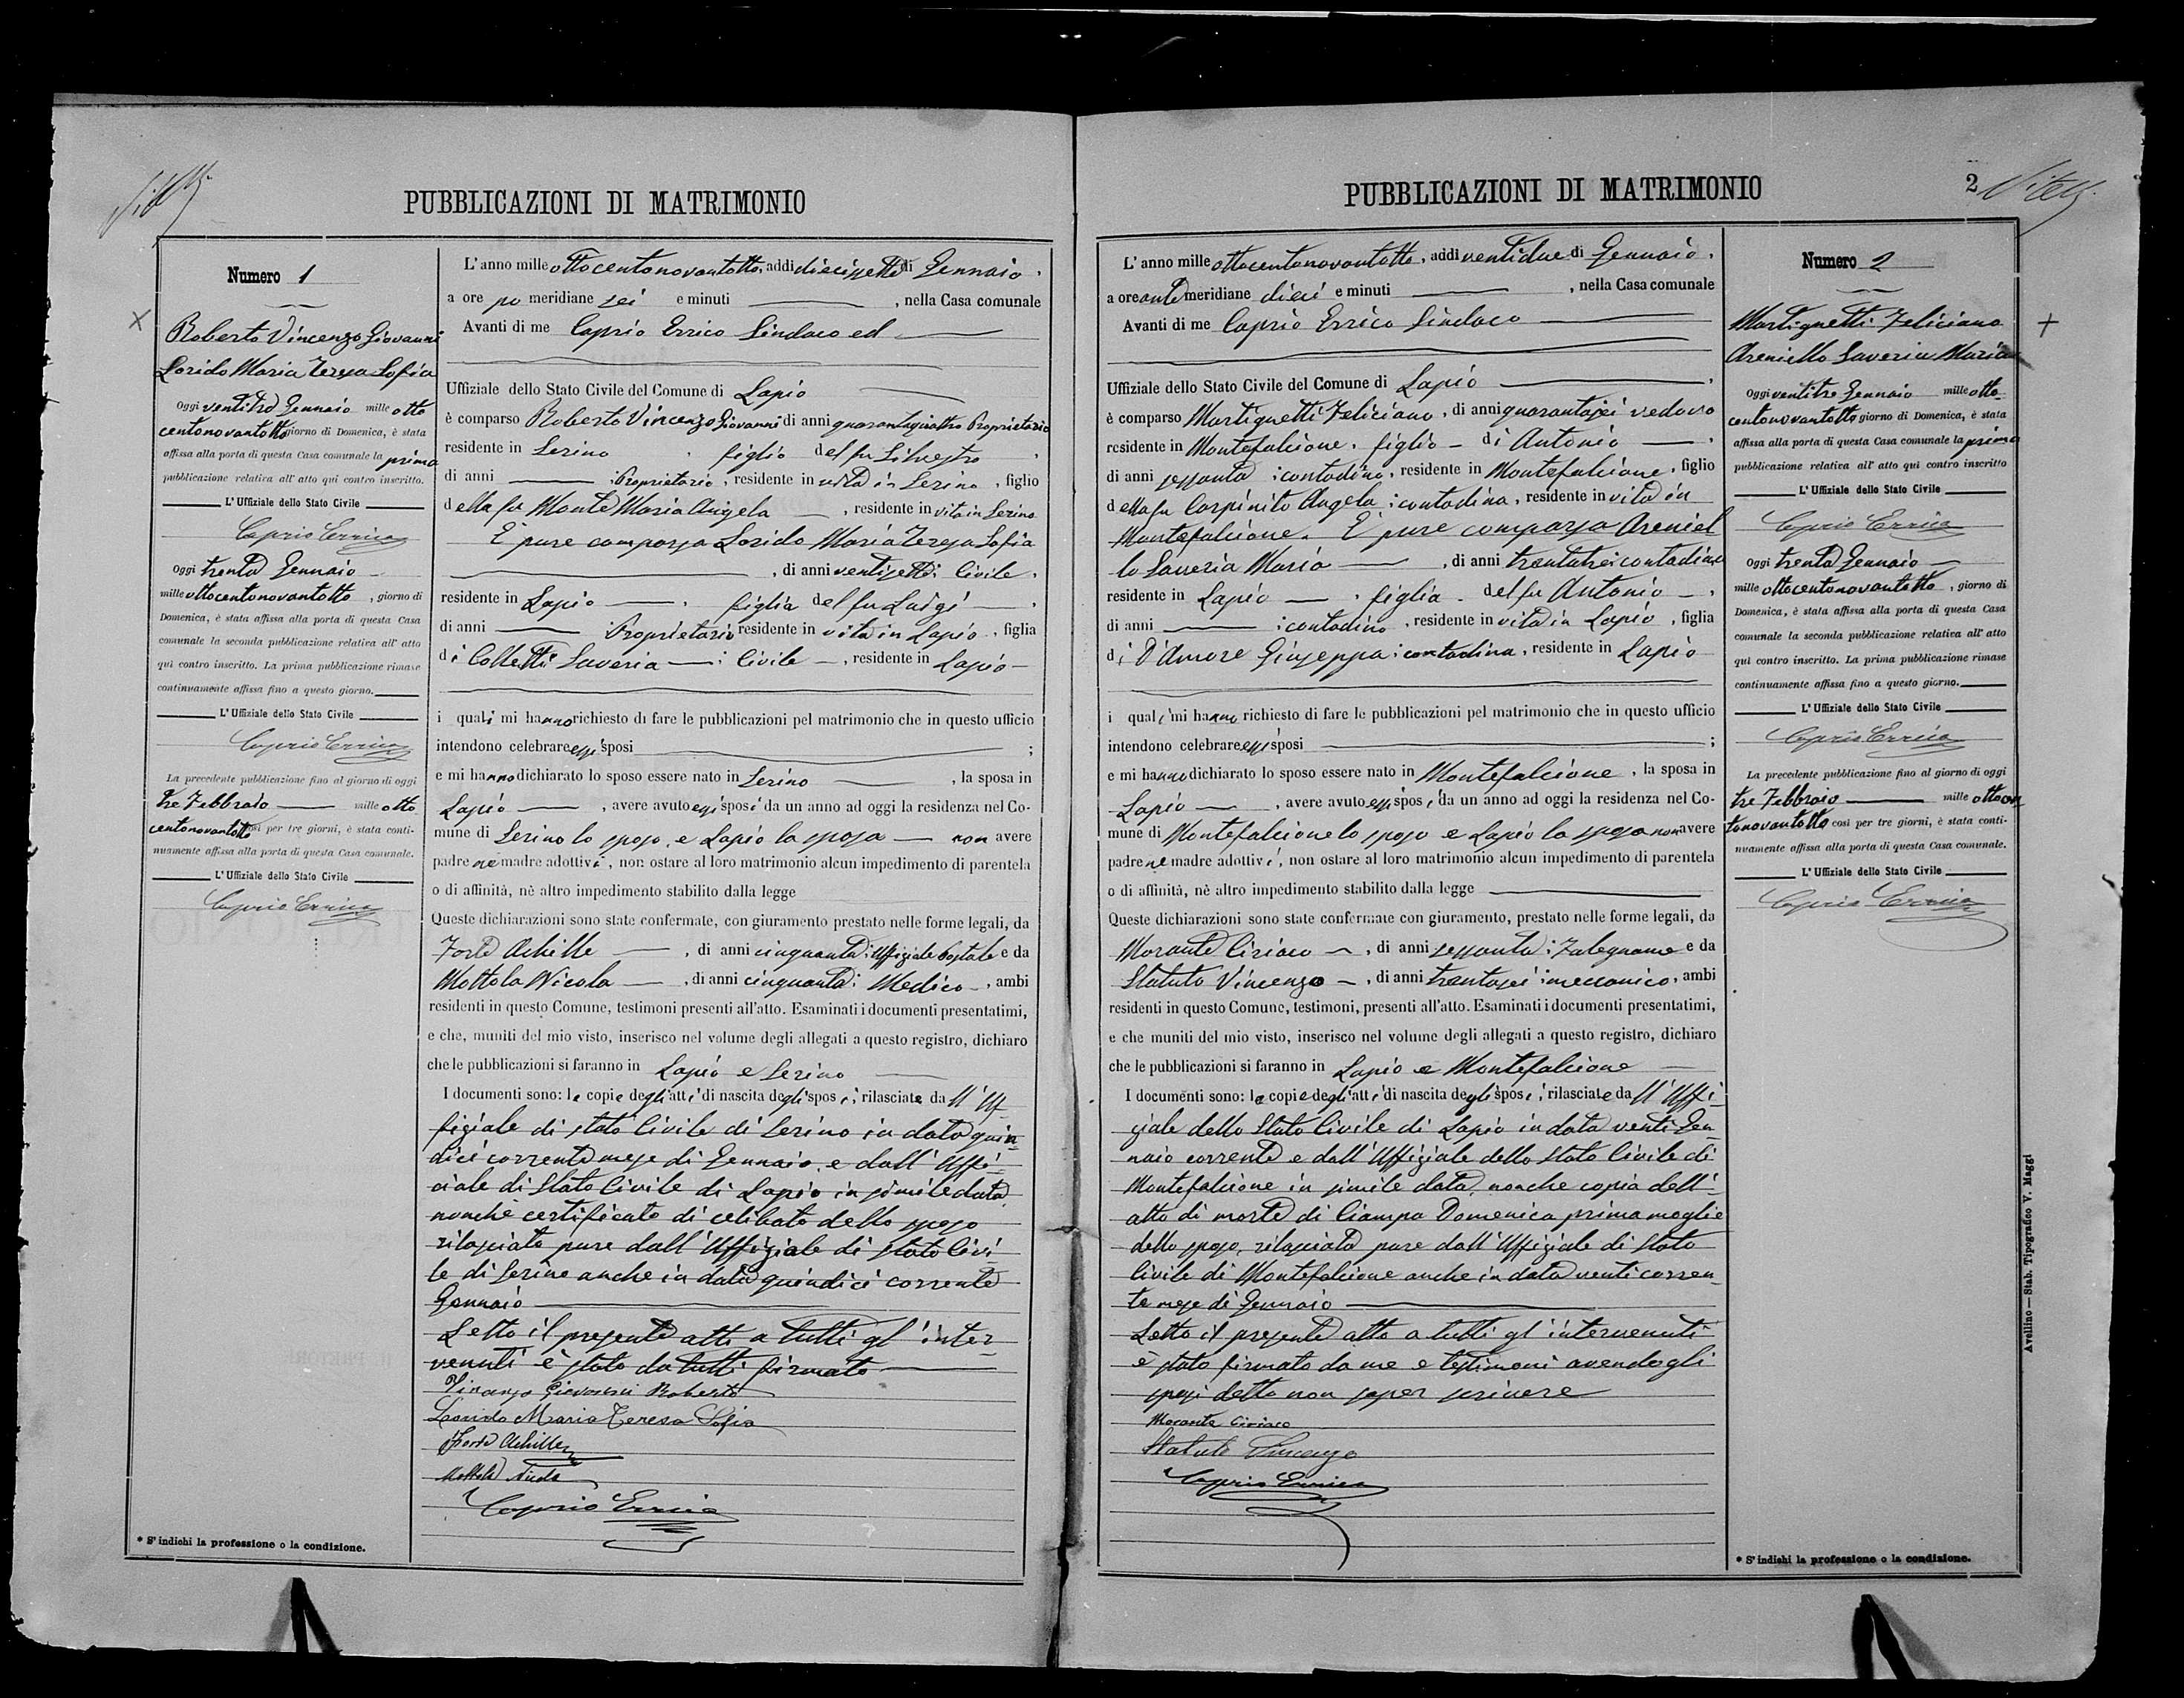 PUBBLICAZIONI DI MATRIMONIO
Numero 1
Roberto Vincenzo Giovanni
Lorido Maria Teresa Sofia
Oggi ventitre Gennaio mille otto
centonovantotto giorno di Domenica, è stata
affissa alla porta di questa Casa comunale la prima
pubblicazione relativa all' atto qui contro inscritto.
L' Uffiziale dello Stato Civile
Caprio Errico
Oggi trenta Gennaio
mille ottocentonovantotto, giorno di
Domenica, è stata affissa alla porta di questa Casa
comunale la seconda pubblicazione relativa all' atto
qui contro inscritto. La prima pubblicazione rimase
continuamente affissa fino a questo giorno.
L' Uffiziale dello Stato Civile
Caprio Errico
La precedente pubblicazione fino al giorno di oggi
tre Febbraio mille otto
centonovantotto così per tre giorni, è stata conti-
nuamente affissa alla porta di questa Casa comunale.
L' Uffiziale dello Stato Civile
Caprio Errico
* S' indichi la professione o la condizione.
L' anno mille ottocentonovantotto, addì diecissette di Gennaio,
a ore po meridiane sei e minuti , nella Casa comunale
Avanti di me Caprio Errico Sindaco ed
Uffiziale dello Stato Civile del Comune di Lapio
è comparso Roberto Vincenzo Giovanni di anni quarantaquattro Proprietario
residente in Serino, figlio del fu Silvestro,
di anni ; Proprietario, residente in vita in Serino, figlio
della fu Monte Maria Angela , residente in vita in Serino
E' pure comparsa Lorido Maria Teresa Sofia
, di anni ventisette; Civile,
residente in Lapio , figlia del fu Luigi ,
di anni ; Proprietario residente in vita in Lapio, figlia
di Colletti Saveria ; Civile , residente in Lapio
i quali mi hanno richiesto di fare le pubblicazioni pel matrimonio che in questo ufficio
intendono celebrare essi sposi ;
e mi hanno dichiarato lo sposo essere nato in Serino , la sposa in
Lapio , avere avuto essi sposi da un anno ad oggi la residenza nel Co-
mune di Serino lo sposo, e Lapio la sposa non avere
padre ne madre adottivi, non ostare al loro matrimonio alcun impedimento di parentela
o di affinità, nè altro impedimento stabilito dalla legge
Queste dichiarazioni sono state confermate, con giuramento prestato nelle forme legali, da
Forte Achille , di anni cinquanta; Uffiziale Postale e da
Mottola Nicola , di anni cinquanta; Medico, ambi
residenti in questo Comune, testimoni presenti all'atto. Esaminati i documenti presentatimi,
e che, muniti del mio visto, inserisco nel volume degli allegati a questo registro, dichiaro
che le pubblicazioni si faranno in Lapio e Serino
I documenti sono: le copie degli atti di nascita degli sposi, rilasciate dall' Uf-
fiziale di stato Civile di Serino in data quin-
dici corrente mese di Gennaio, e dall' Uffi-
ciale di stato Civile di Lapio in simile data
nonchè certificato di celibato dello sposo
rilasciato pure dall' Uffiziale di stato Civi
le di Serino anche in data quindici corrente
Gennaio
Letto il presente atto a tutti gl' inter
venuti è stato da tutti firmato
Vincenzo Giovanni Roberto
Lorido Maria Teresa Sofia
Forte Achille
Mottola Nicola
Caprio Errico
PUBBLICAZIONI DI MATRIMONIO
2
L' anno mille ottocentonovantotto, addì ventidue di Gennaio,
a ore ante meridiane dieci e minuti , nella Casa comunale
Avanti di me Caprio Errico Sindaco
Uffiziale dello Stato Civile del Comune di Lapio ,
è comparso Martignetti Feliciano, di anni quarantasei vedovo
residente in Montefalcione, figlio di Antonio ,
di anni sessanta ; contadino, residente in Montefalcione, figlio
della fu Carpinito Angela ; contadina, residente in vita in
Montefalcione. E' pure comparsa Areniel
lo Saveria Maria , di anni trentatre; contadina
residente in Lapio , figlia del fu Antonio ,
di anni ; contadino, residente in vita in Lapio, figlia
di D'Amore Giuseppa ; contadina, residente in Lapio
i quali mi hanno richiesto di fare le pubblicazioni pel matrimonio che in questo ufficio
intendono celebrare essi sposi ;
e mi hanno dichiarato lo sposo essere nato in Montefalcione, la sposa in
Lapio , avere avuto essi sposi da un anno ad oggi la residenza nel Co-
mune di Montefalcione lo sposo e Lapio la sposa non avere
padre ne madre adottivi, non ostare al loro matrimonio alcun impedimento di parentela
o di affinità, nè altro impedimento stabilito dalla legge
Queste dichiarazioni sono state confermate con giuramento, prestato nelle forme legali, da
Morante Ciriaco , di anni sessanta ; Falegname e da
Statuto Vincenzo , di anni trentasei ; meccanico, ambi
residenti in questo Comune, testimoni, presenti all'atto. Esaminati i documenti presentatimi,
e che muniti del mio visto, inserisco nel volume degli allegati a questo registro, dichiaro
che le pubblicazioni si faranno in Lapio e Montefalcione
I documenti sono: le copie degli atti di nascita degli sposi, rilasciate dall' Uffi-
ziale dello Stato Civile di Lapio in data venti Gen-
naio corrente e dall' Uffiziale dello stato Civile di
Montefalcione in simile data, nonchè copia dell'
atto di morte di Ciampa Domenica prima moglie
dello sposo, rilasciata pure dall' Uffiziale di Stato
Civile di Montefalcione anche in data venti corren-
te mese di Gennaio
Letto il presente atto a tutti gl' intervenuti
è stato firmato da me e testimoni avendo gli
sposi detto non saper scrivere
Morante Ciriaco
Statuto Vincenzo
Caprio Errico
Numero 2
Martignetti Feliciano
Areniello Saveria Maria
Oggi ventitre Gennaio mille otto
centonovantotto giorno di Domenica, è stata
affissa alla porta di questa Casa comunale la prima
pubblicazione relativa all' atto qui contro inscritto
L' Uffiziale dello Stato Civile
Caprio Errico
Oggi trenta Gennaio
mille ottocentonovantotto, giorno di
Domenica, è stata affissa alla porta di questa Casa
comunale la seconda pubblicazione relativa all' atto
qui contro inscritto. La prima pubblicazione rimase
continuamente affissa fino a questo giorno.
L' Uffiziale dello Stato Civile
Caprio Errico
La precedente pubblicazione fino al giorno di oggi
tre Febbraio mille ottocen
tonovantotto così per tre giorni, è stata conti-
nuamente affissa alla porta di questa Casa comunale.
L' Uffiziale dello Stato Civile
Caprio Errico
* S' indichi la professione o la condizione.
Avellino — Stab. Tipografico V. Maggi